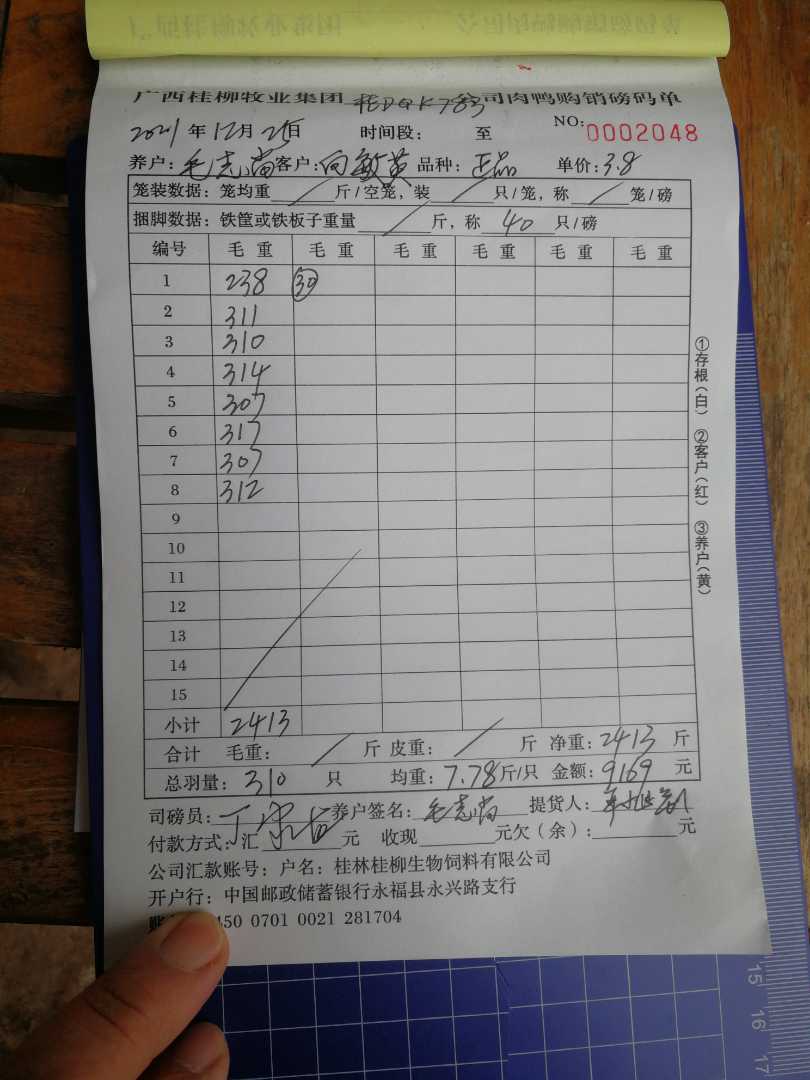 广西桂柳牧业集团 桂DQK783 公司肉鸭购销磅码单
2021年12月25日 时间段： 至 NO: 0002048
养户：毛志尚 客户：向敏英 品种：正品 单价：3.8
笼装数据：笼均重 / 斤/空笼，装 / 只/笼，称 / 笼/磅
捆脚数据：铁筐或铁板子重量 / 斤，称 40 只/磅
编号 毛重 毛重 毛重 毛重 毛重 毛重
1 238 30
2 311
3 310
4 314
5 307
6 317
7 307
8 312
9
10
11
12
13
14
15
小计 2413
合计 毛重： / 斤 皮重： / 斤 净重：2413 斤
总羽量：310 只 均重：7.78斤/只 金额：9169 元
司磅员： 养户签名：毛志尚 提货人：
付款方式：汇 元 收现 元欠（余）： 元
公司汇款账号：户名：桂林桂柳生物饲料有限公司
开户行：中国邮政储蓄银行永福县永兴路支行
450 0701 0021 281704
①存根（白） ②客户（红） ③养户（黄）
15
16
17